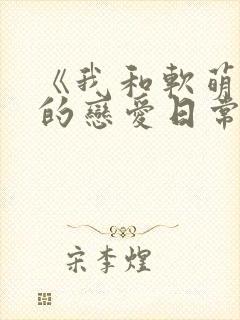 《我和軟萌
的戀愛日常
宋李煌